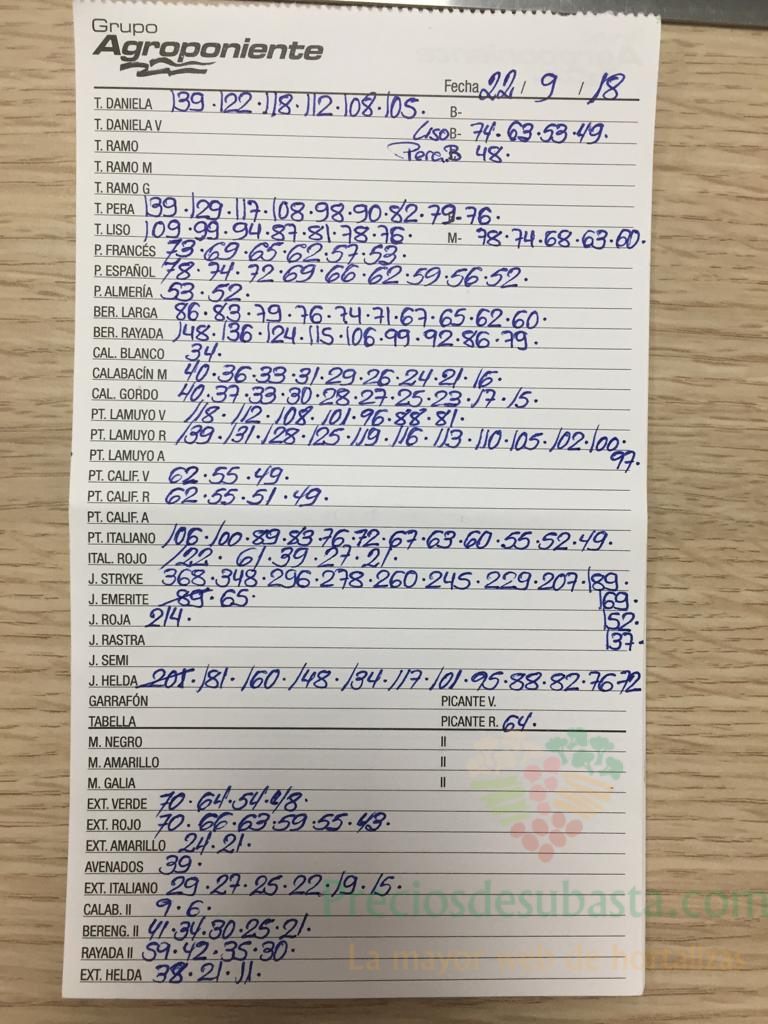 Grupo
Agroponiente
Fecha 22 / 9 / 18
T. DANIELA 139 · 122 · 118 · 112 · 108 · 105 · B-
T. DANIELA V Liso B- 74 · 63 · 53 · 49 ·
T. RAMO Pera B 48 ·
T. RAMO M
T. RAMO G
T. PERA 139 · 129 · 117 · 108 · 98 · 90 · 82 · 79 · 76 ·
T. LISO 109 · 99 · 94 · 87 · 81 · 78 · 76 · M- 78 · 74 · 68 · 63 · 60 ·
P. FRANCÉS 73 · 69 · 65 · 62 · 57 · 53 ·
P. ESPAÑOL 78 · 74 · 72 · 69 · 66 · 62 · 59 · 56 · 52 ·
P. ALMERÍA 53 · 52 ·
BER. LARGA 86 · 83 · 79 · 76 · 74 · 71 · 67 · 65 · 62 · 60 ·
BER. RAYADA 148 · 136 · 124 · 115 · 106 · 99 · 92 · 86 · 79 ·
CAL. BLANCO 34 ·
CALABACÍN M 40 · 36 · 33 · 31 · 29 · 26 · 24 · 21 · 16 ·
CAL. GORDO 40 · 37 · 33 · 30 · 28 · 27 · 25 · 23 · 17 · 15 ·
PT. LAMUYO V 118 · 112 · 108 · 101 · 96 · 88 · 81 ·
PT. LAMUYO R 139 · 131 · 128 · 125 · 119 · 116 · 113 · 110 · 105 · 102 · 100 ·
PT. LAMUYO A 97 ·
PT. CALIF. V 62 · 55 · 49 ·
PT. CALIF. R 62 · 55 · 51 · 49 ·
PT. CALIF. A
PT. ITALIANO 106 · 100 · 89 · 83 76 · 72 · 67 · 63 · 60 · 55 · 52 · 49 ·
ITAL. ROJO 122 · 61 · 39 · 27 · 21 ·
J. STRYKE 368 · 348 · 296 · 278 · 260 · 245 · 229 · 207 · 189 ·
J. EMERITE 89 · 65 · 169 ·
J. ROJA 214 · 152 ·
J. RASTRA 137 ·
J. SEMI
J. HELDA 201 · 181 · 160 · 148 · 134 · 117 · 101 · 95 · 88 · 82 · 76 72
GARRAFÓN PICANTE V.
TABELLA PICANTE R. 64 ·
M. NEGRO II
M. AMARILLO II
M. GALIA II
EXT. VERDE 70 · 64 · 54 · 48 ·
EXT. ROJO 70 · 66 · 63 · 59 · 55 · 43 ·
EXT. AMARILLO 24 · 21 ·
AVENADOS 39 ·
EXT. ITALIANO 29 · 27 · 25 · 22 · 19 · 15 ·
Preciosdesubasta.com
CALAB. II 9 · 6 ·
BERENG. II 41 · 34 · 30 · 25 · 21 ·
RAYADA II 59 · 42 · 35 · 30 ·
La mayor web de hortalizas
EXT. HELDA 38 · 21 · 11 ·